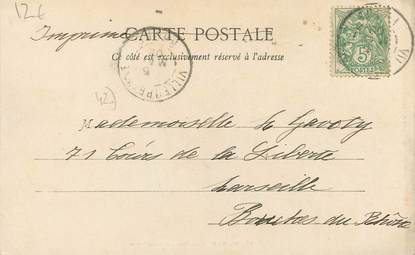 126
CARTE POSTALE
Imprimé
Ce côté est exclusivement réservé à l'adresse
5
42
Mademoiselle de Gavoty
71 Cours de la Liberté
Marseille
Bouches du Rhône